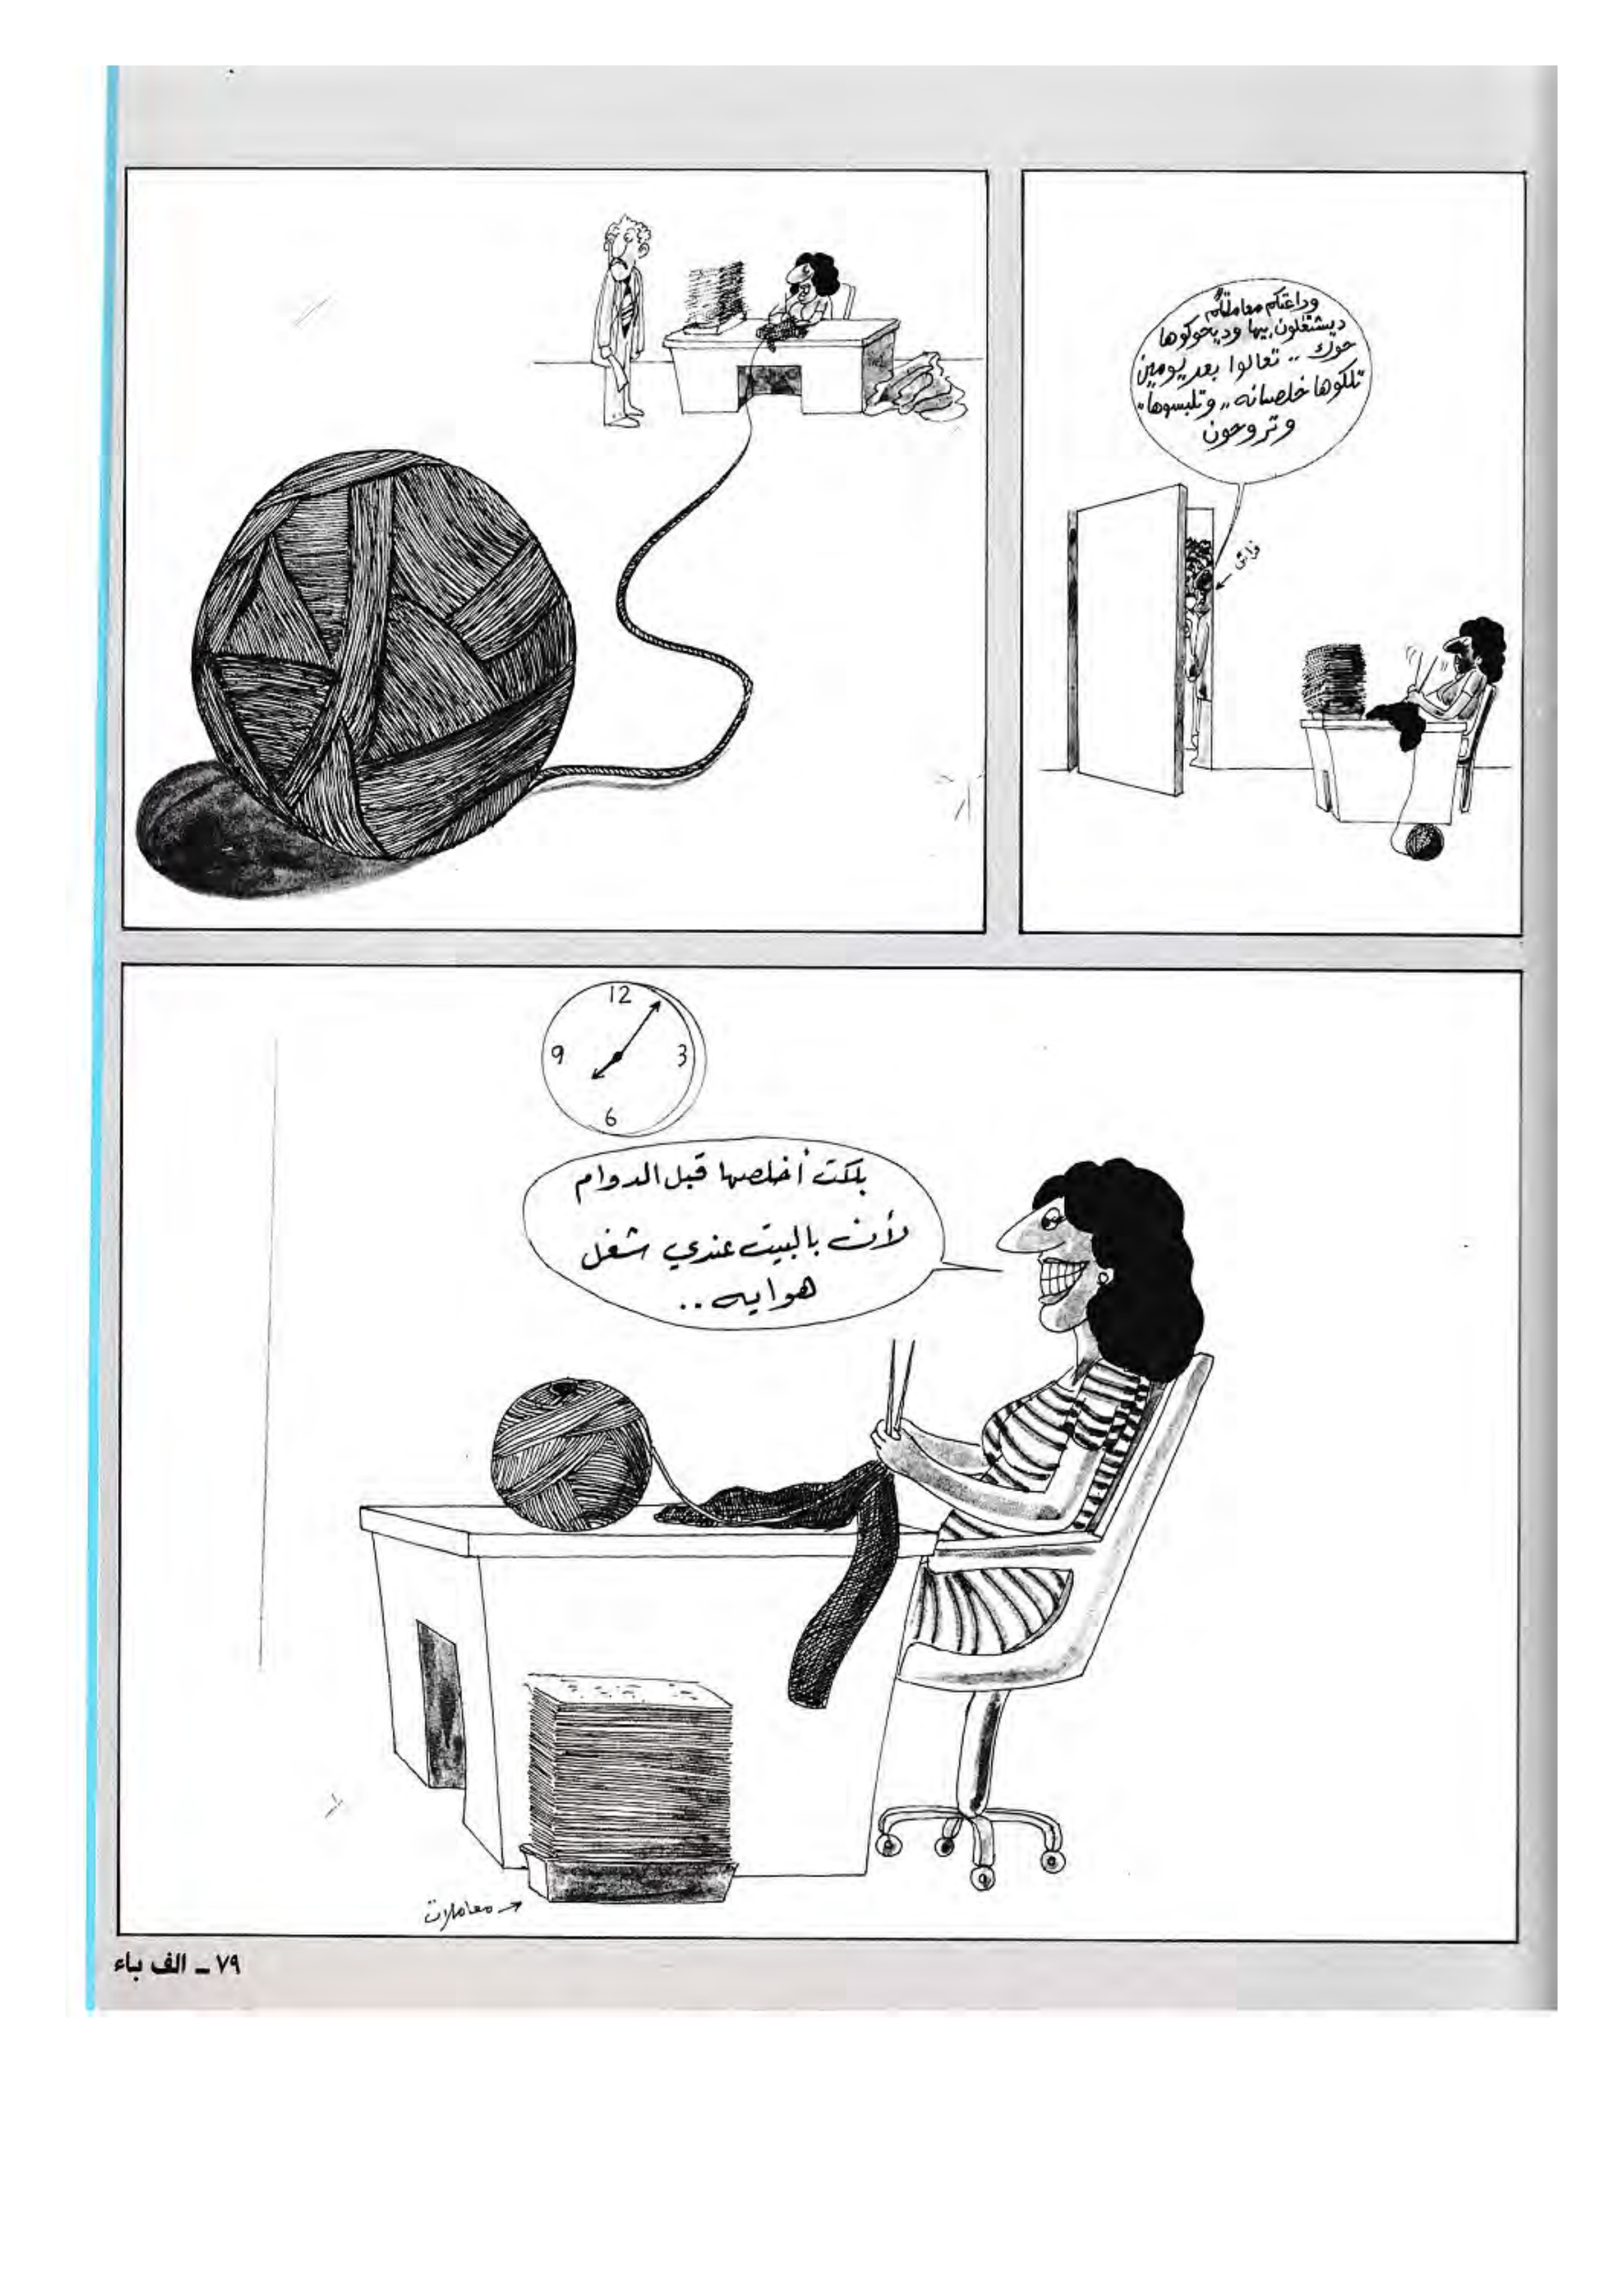 وداعتكم معاملتكم
ديشتغلون بيها وديحوكوها
حوك .. تعالوا بعد يومين
تلكوها خلصانه ,, وتلبسوها"
وتروحون
فراش
12
3
6
9
بلكت أخلصها قبل الدوام
لأن بالبيت عندي شغل
هوايه ..
معاملات
٧٩ ــ الف باء